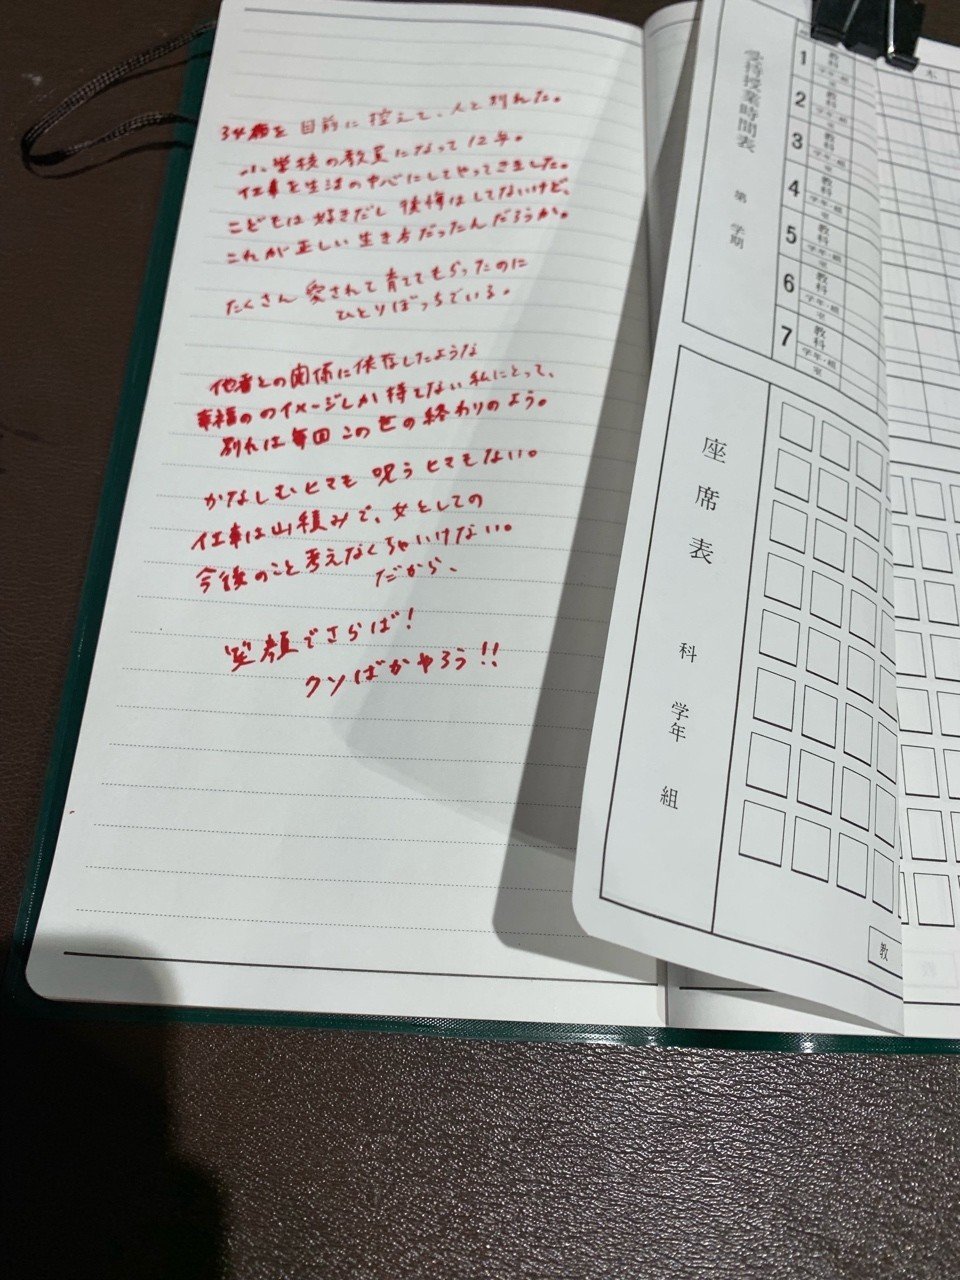 34歳を目前に控えて、人と別れた。
小学校の教員になって12年。
仕事を生活の中心にしてやってきました。
こどもは好きだし後悔はしてないけど、
これが正しい生き方だったんだろうか。
たくさん愛されて育ててもらったのに
ひとりぼっちでいる。
他者との関係に依存したような
幸福ののイメージしか持てない私にとって、
別れは毎回この世の終わりのよう。
かなしむヒマも呪うヒマもない。
仕事は山積みで、女としての
今後のこと考えなくちゃいけない。
だから、
笑顔でさらば!
クソばかやろう!!
受持授業時間表 第 学期
1 教科 学年・組 室
2 教科 学年・組 室
3 教科 学年・組 室
4 教科 学年・組 室
5 教科 学年・組 室
6 教科 学年・組 室
7 教科 学年・組 室
木
座席表 科 学年 組
教